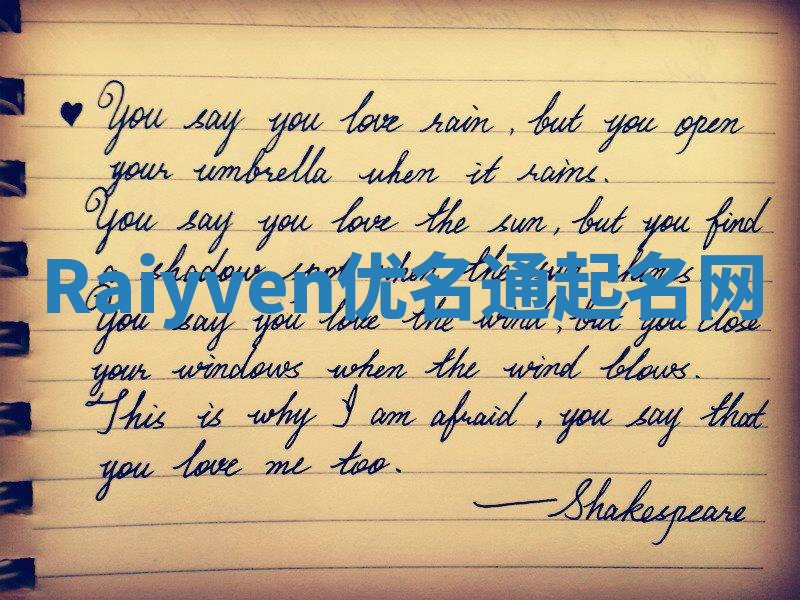 ♥ You say you love rain, but you open
your umbrella when it rains.
You say you love the sun, but you find
a shadow spot when the sun shines
Raiyven优名通起名网
You say you love the wind, but you close
your windows when the wind blows.
This is why I am afraid, you say that
you love me too.
—Shakespeare